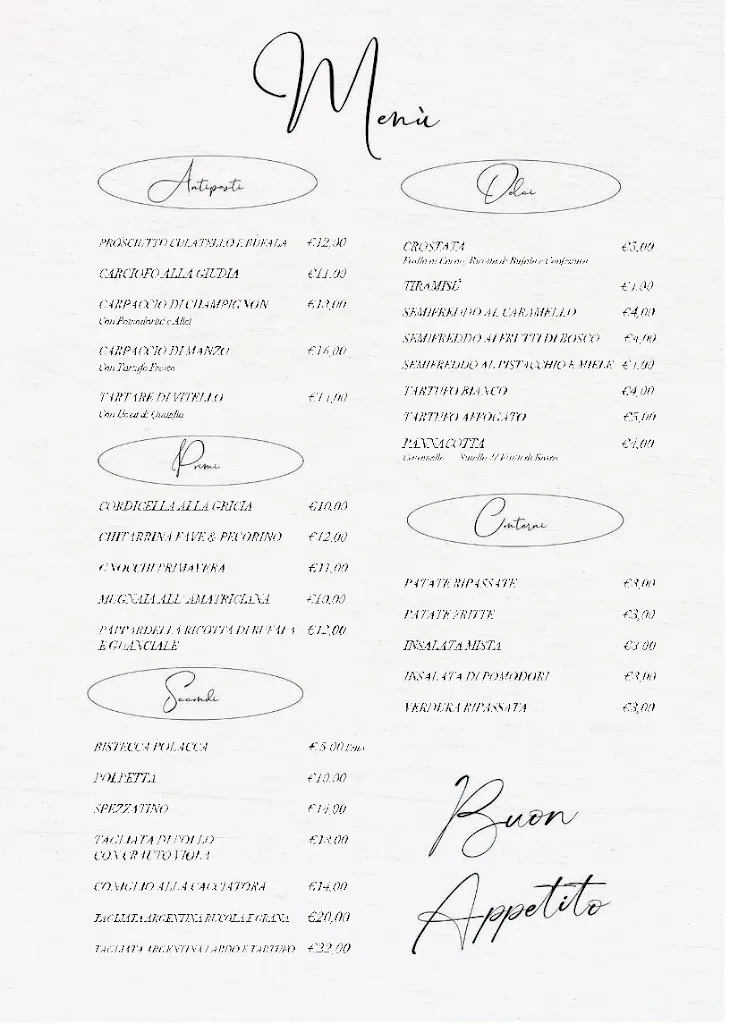 Menù
Antipasti
PROSCIUTTO CULATELLO E BUFALA €12,00
CARCIOFO ALLA GIUDIA €11,00
CARPACCIO DI CHAMPIGNON €13,00
Con Pomodorini e Alici
CARPACCIO DI MANZO €16,00
Con Tartufo Fresco
TARTARE DI VITELLO
Con Uova di Quaglia
Primi
CORDICELLA ALLA GRICIA €10,00
CHITARRINA FAVE & PECORINO €12,00
GNOCCHI PRIMAVERA €11,00
MUGNAIA ALL'AMATRICIANA €10,00
PAPPARDELLA RICOTTA DI BUFALA €12,00
E GUANCIALE
Secondi
BISTECCA POLACCA € 5,00
POLPETTA €10,00
SPEZZATINO €14,00
TAGLIATA DI POLLO €13,00
CON CRAUTO VIOLA
CONIGLIO ALLA CACCIATORA €14,00
TAGLIATA ARGENTINA RUCOLA E GRANA €20,00
TAGLIATA ARGENTINA LARDO E TARTUFO €22,00
Dolci
CROSTATA €5,00
Frolla al Cacao, Ricotta di Bufala e Confettura
TIRAMISÙ
SEMIFREDDO AL CARAMELLO €4,00
SEMIFREDDO AI FRUTTI DI BOSCO €4,00
SEMIFREDDO AL PISTACCHIO E MIELE
TARTUFO BIANCO €4,00
TARTUFO AFFOGATO €5,00
PANNACOTTA €4,00
Caramello Nutella // Frutti di Bosco
Contorni
PATATE RIPASSATE €3,00
PATATE FRITTE €3,00
INSALATA MISTA €3,00
INSALATA DI POMODORI €3,00
VERDURA RIPASSATA €3,00
Buon
Appetito